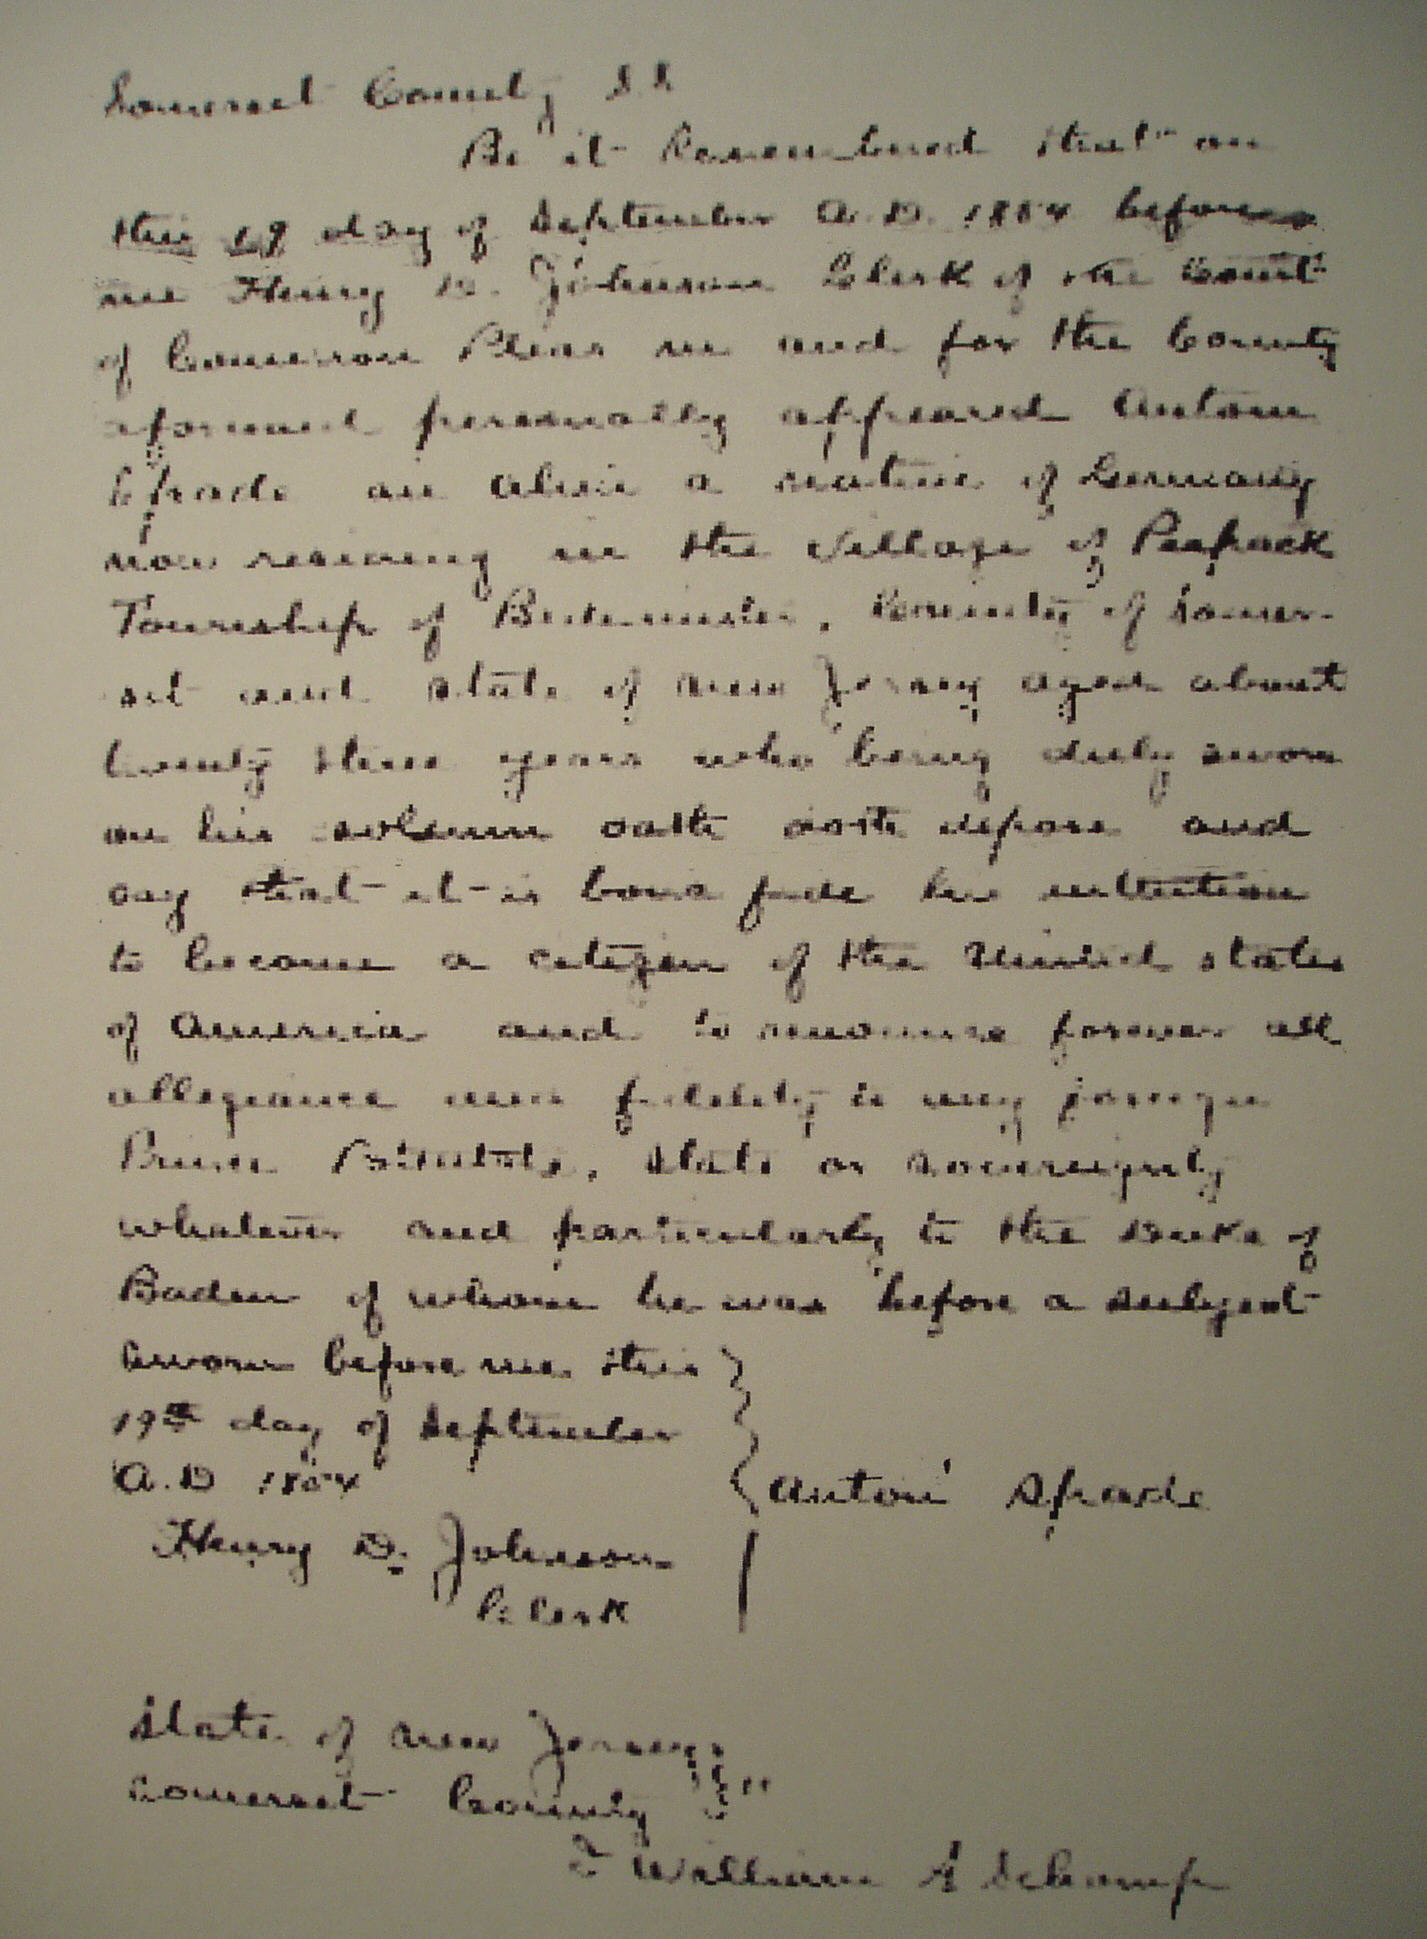 Somerset County S S
Be it Remembered that on
this 19 day of September A.D. 1854 before
me Henry D. Johnson Clerk of the Court
of Common Pleas in and for the County
aforesaid personally appeared Anton
Spade an Alien a native of Germany
now residing in the Village of Peapack
Township of Bedminster, County of Somer-
set and State of New Jersey aged about
twenty three years who being duly sworn
on his solemn oath doth depose and
say that it is bona fide his intention
to become a citizen of the United States
of America and to renounce forever all
allegiance and fidelity to any foreign
Prince Potentate, State or sovereignty
whatever and particularly to the Duke of
Baden of whom he was before a subject
Sworn before me this
19th day of September
A.D 1854
Anton Spade
Henry D. Johnson
Clerk
State of New Jersey
Somerset County
I William S